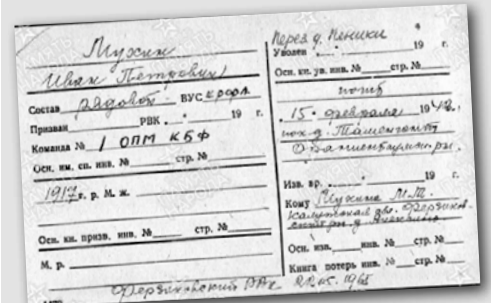 Мухин
Иван Петрович
Состав рядовой ВУС
Призван РВК 19 г.
Команда № 1 ОПМ КБФ
Осн. им. сп. инв. № стр. №
1917 г. р. М. ж.
Осн. кн. призв. инв. № стр. №
М. р.
РВК 22.05.1965
Перез. д. Пеники 4
Уволен 19 г.
Осн. кн. ув. инв. № стр. №
погиб
15 февраля 1942 г.
пох. д. Таменгонт
Ораниенбаум. р.
Изв. вр. 19 г.
Кому Мухина М.
Калужская
Осн. изв. инв. № стр. №
Книга потерь инв. № стр. №